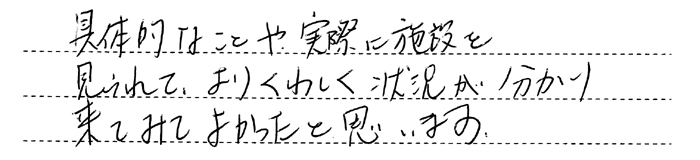 具体的なことや実際に施設を
見られて、よりくわしく状況が分かり
来てみてよかったと思います。